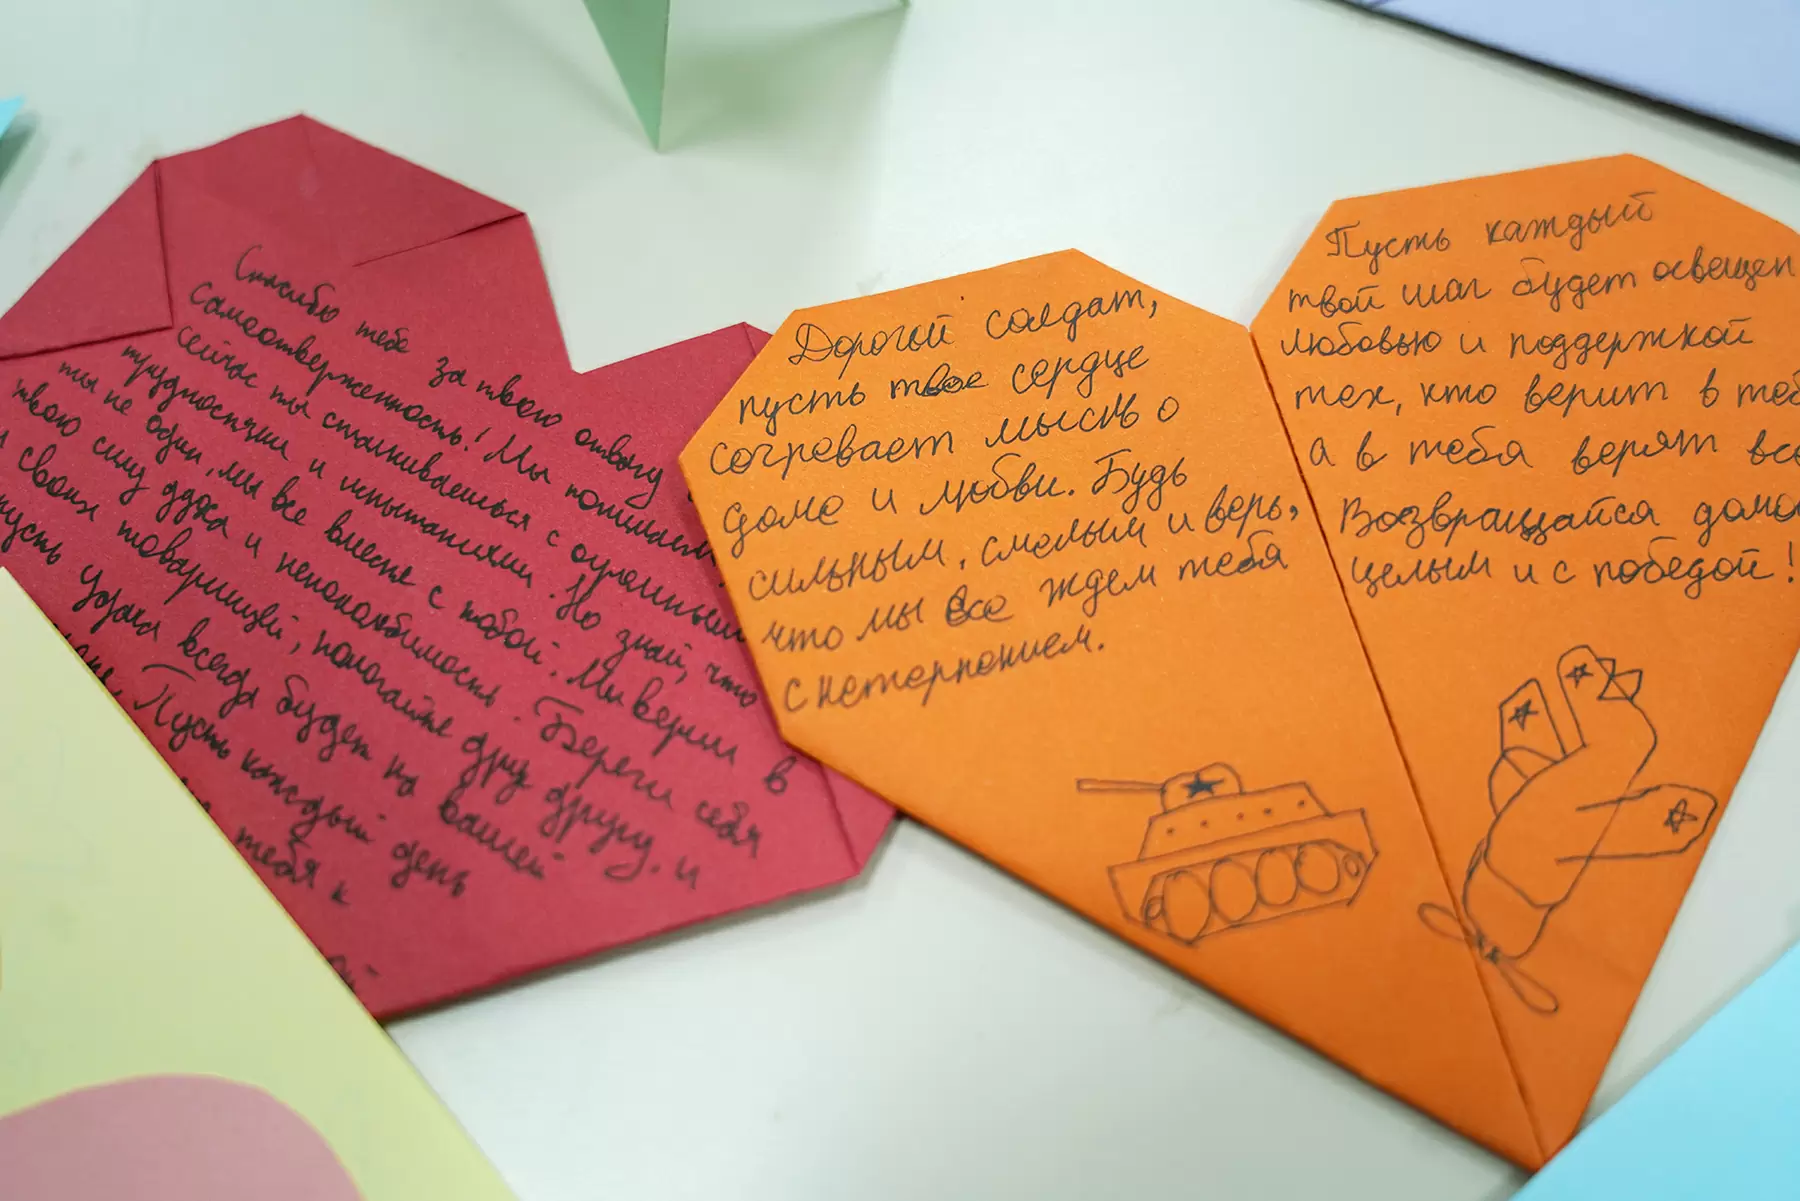 Спасибо тебе за твою отвагу
самоотверженность! Мы понимаем
сейчас ты сталкиваешься с огромными
трудностями и испытаниями. Но знай, что
ты не один, мы все вместе с тобой. Мы верим в
твою силу духа и непоколебимость. Береги себя
своих товарищей, помогайте друг другу. и
пусть удача всегда будет на вашей
Пусть каждый день
тебя к
Дорогой солдат,
пусть твое сердце
согревает мысль о
доме и любви. Будь
сильным, смелым и верь,
что мы все ждем тебя
с нетерпением.
Пусть каждый
твой шаг будет освещен
любовью и поддержкой
тех, кто верит в
а в тебя верят все
Возвращайся
целым и с победой!